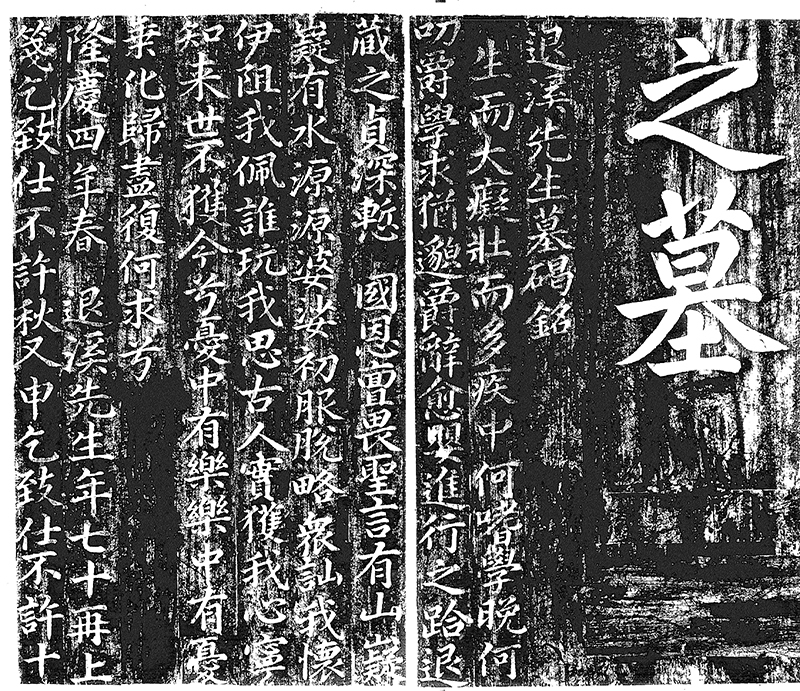 之墓
退溪先生墓碣銘
生而大癡壯而多疾中何嗜學晚何
叨爵學求猶邈爵辭愈嬰進行之跲退
蔵之貞深慙 國恩亶畏聖言有山嶷
嶷有水源源婆娑初服脫略衆訕我懷
伊阻我佩誰玩我思古人實獲我心寧
知来世不獲今兮憂中有樂樂中有憂
乗化歸盡復何求兮
隆慶四年春 退溪先生年七十再上
箋乞致仕不許秋又申乞致仕不許十